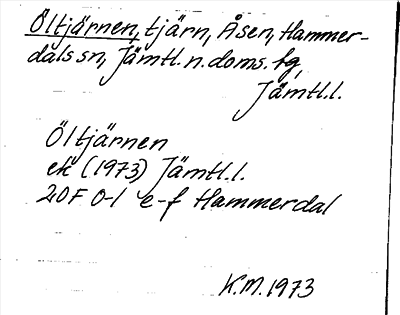 Öltjärnen, tjärn, Åsen, Hammer-
dals sn, Jämtl. n. doms. fg,
Jämtl.l.
Öltjärnen
ek (1973) Jämtl.l.
20F 0-1 e-f Hammerdal
K.M. 1973